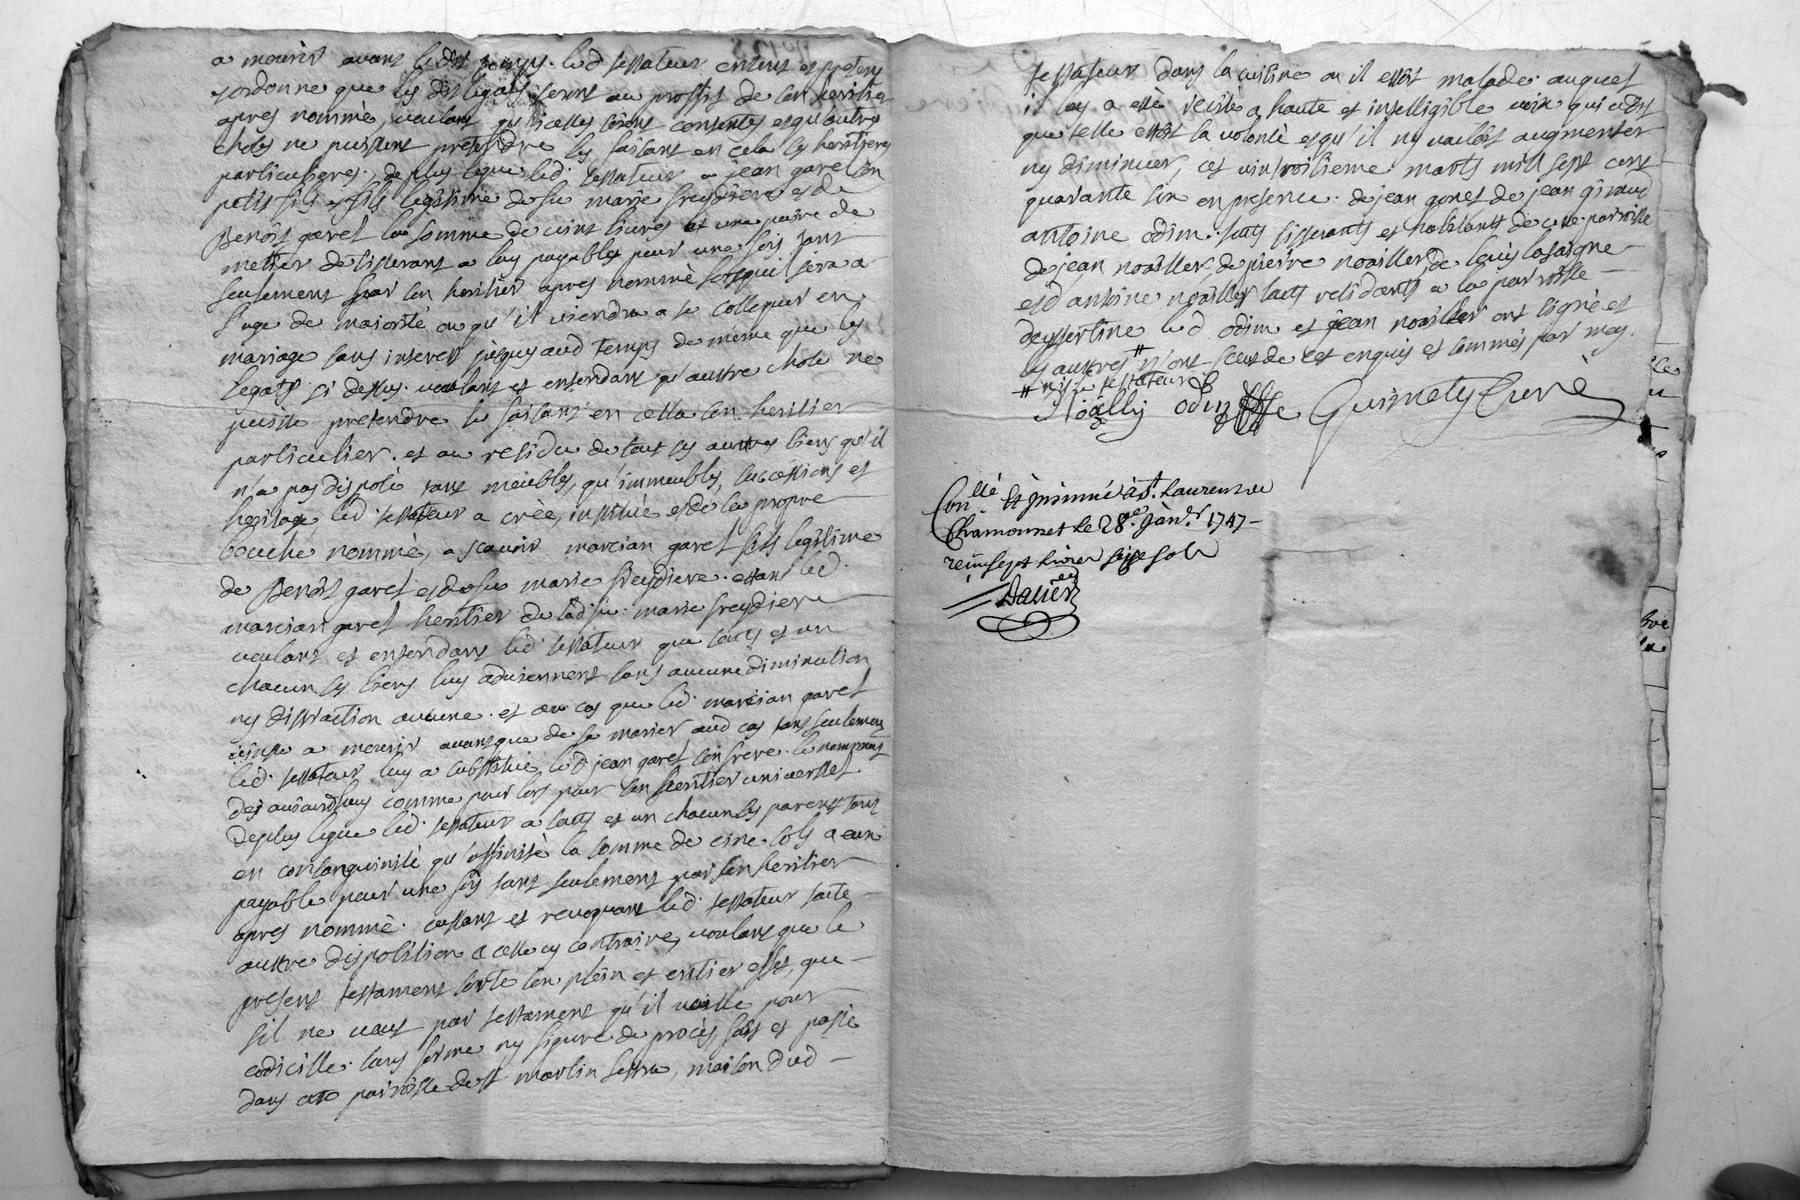 a mourir avant ledit temps. led testateur entent et pretent
et ordonne que les dits legats seront au proffit de son heritier
apres nommé, voulant qu'icelles soient contentes et qu'autre
chose ne puissent pretendre les faisant en cela ses heritieres
particulieres, de plus legue led. testateur a jean garel son
petit fils et fils legitime de fu marie freydiere et de
Benoit garel la somme de vint livres et une paire de
mettier de tisserant a luy payables pour une fois tant
seulement par son heritier apres nommé lorsquil sera a
l'age de majorité ou qu'il viendra a se colloquer en
mariage sans interest jusques aud temps de meme que les
legats si dessus. voulant et entendant qu'autre chose ne
puisse pretendre le faisant en cella son heritier
particulier. et au residu de tout ses autres biens qu'il
n'a pas disposé tant meubles, qu'immeubles, successions et
heritage led. testateur a créé, institué et de sa propre
bouche nommé, a scavoir marcian garel fils legitime
de Benoit garel et de fu marie freydiere. estant led.
marcian garel heritier de lad. fu. marie freydiere
voulant et entendant led. testateur que touts et un
chacun ses biens luy adviennent sans aucune diminution
ny distraction aucune. et au cas que led. marcian garel
a mourir avant que de se marier aud cas tant seulement
led. testateur luy a substitué led jean garel son frere. le nommant
des aujourdhuy comme pour lors pour son heritier universel.
de plus legue led. testateur a touts et un chacun ses parents tant
en consanguinité qu'affinité la somme de cinc sols a un
payable pour une fois tant seulement par son heritier
apres nommé. cassant et revoquant led. testateur toute
autre disposition a celle cy contraire, voulant que le
present testament sorte son plein et entier effet, que
s'il ne vaut par testament qu'il vaille pour
codicille. sans forme ny figure de procès, fait et passé
dans cette parroisse de st martin lestra, maison dud
testateur dans la cuisine ou il estoit malade. auquel
il luy a esté recité a haute et intelligible voix qui a dit
que telle estoit sa volonté et qu'il ny vouloit augmenter
ny diminuer, cet vint troisieme marts mill sept cent
quarante six en presence. de jean gonet de jean giraud
antoine odin. touts tisserants et habitants de cette parroisse
de jean noailler, de pierre noailler, de louis lasaigne
et d'antoine noailler touts residants a la parroisse
deyssertine led. odin et jean noailler ont signé et
les autres # n'ont sceut de ce enquis et sommés par moy.
# ni le testateur
Noally odin Guionety Curé
Con.llé et insinué à st. Laurens de
Chamousset le 28.e Janv.r 1747
reçu sept livres sols
Dalier